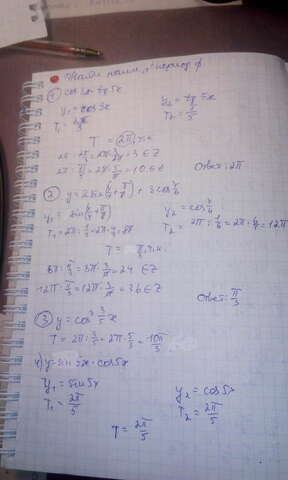 Найти наим. период ф
① cos3x · tg5x
y₁ = cos3x y₂ = tg5x
T₁ = 2π/3 T₂ = π/5
T = 2π, т.к.
2π : 2π/3 = 2π · 3/2π = 3 ∈ Z
2π : π/5 = 2π · 5/π = 10 ∈ Z Ответ: 2π
② y = 2 sin(x/4 + π/8) + 3 cos x/6
y₁ = sin(x/4 + π/8) y₂ = cos x/6
T₁ = 2π : 1/4 = 2π · 4 = 8π T₂ = 2π : 1/6 = 2π · 6 = 12π
T = π/3 т.к.
8π : π/3 = 8π · 3/π = 24 ∈ Z
12π : π/3 = 12π · 3/π = 36 ∈ Z
Ответ: π/3
③ y = cos 3/5 x
T = 2π : 3/5 = 2π · 5/3 = 10π/3
4) y = sin5x · cos5x
y₁ = sin5x y₂ = cos5x
T₁ = 2π/5 T₂ = 2π/5
T = 2π/5